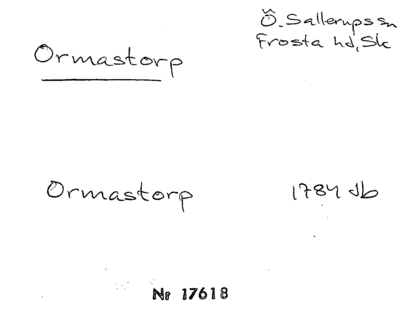 Ö. Sallerups sn
Frosta hd, Sk
Ormastorp
Ormastorp 1784 Jb
Nr 17618